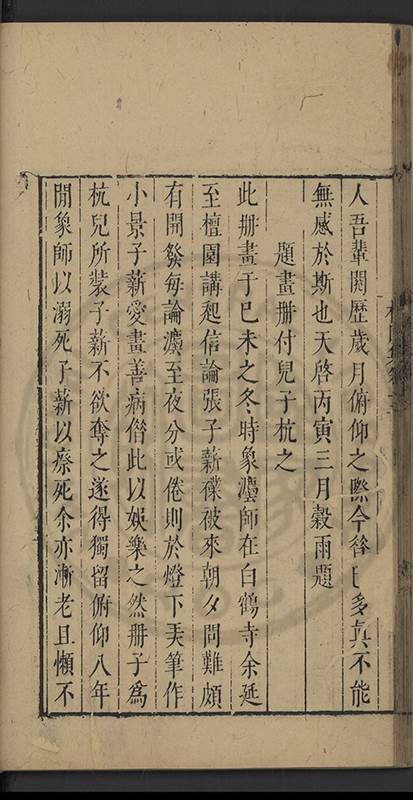 人吾輩閱歷歲月俯仰之際今昔已多真不能
無感於斯也天啓丙寅三月穀雨題
題畫冊付兒子杭之
此冊畫于已未之冬時象瀍師在白鶴寺余延
至檀園講起信論張子薪襆被來朝夕問難頗
有開發每論瀍至夜分或倦則於燈下弄筆作
小景子薪愛畫善病借此以娛樂之然冊子為
杭兒所裝子薪不欲奪之遂得獨留俯仰八年
間象師以溺死子薪以瘵死余亦漸老且懶不